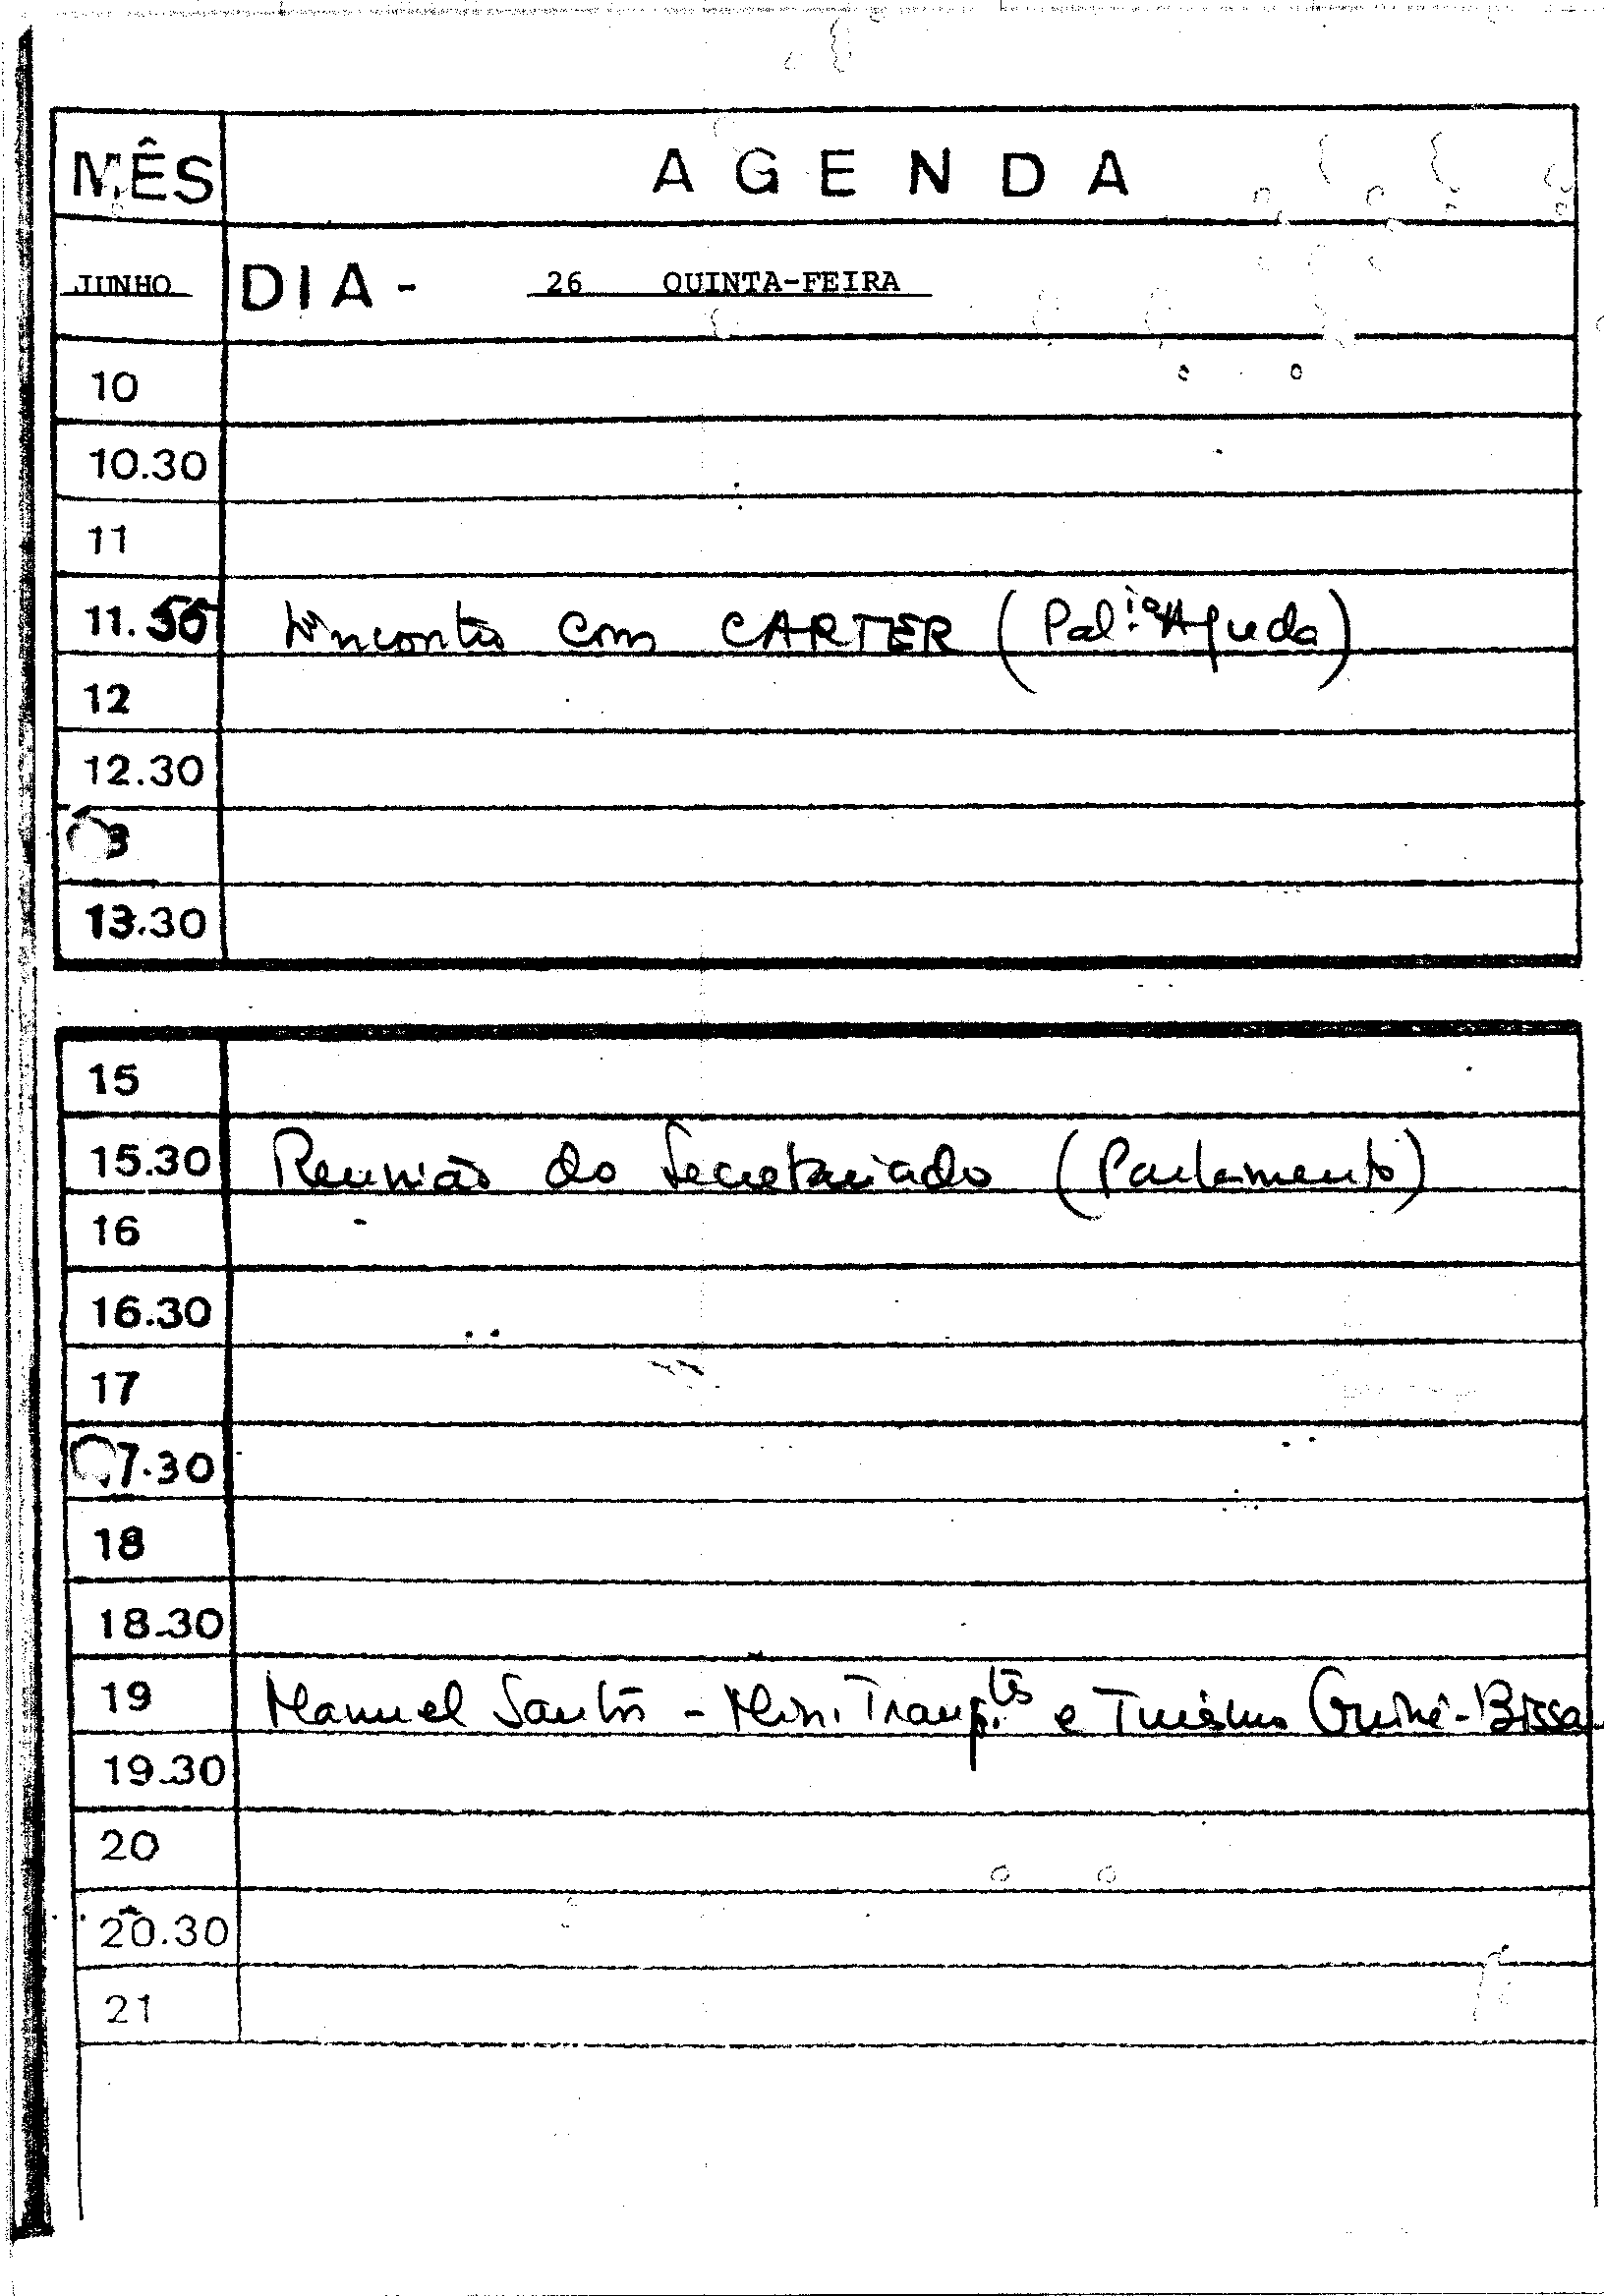 MÊS AGENDA
JUNHO DIA - 26 QUINTA-FEIRA
10
10.30
11
11.55 Encontro com CARTER (Pal.io Ajuda)
12
12.30
3
13.30
15
15.30 Reunião do Secretariado (Parlamento)
16
16.30
17
7.30
18
18.30
19 Manuel Santos - Min. Transp.tes e Turismo Guiné-Bissa
19.30
20
20.30
21